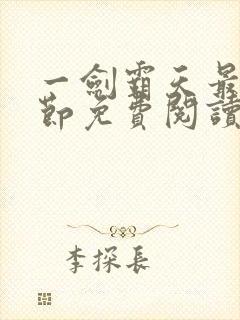 一劍霸天最
節免費閱讀
李探長